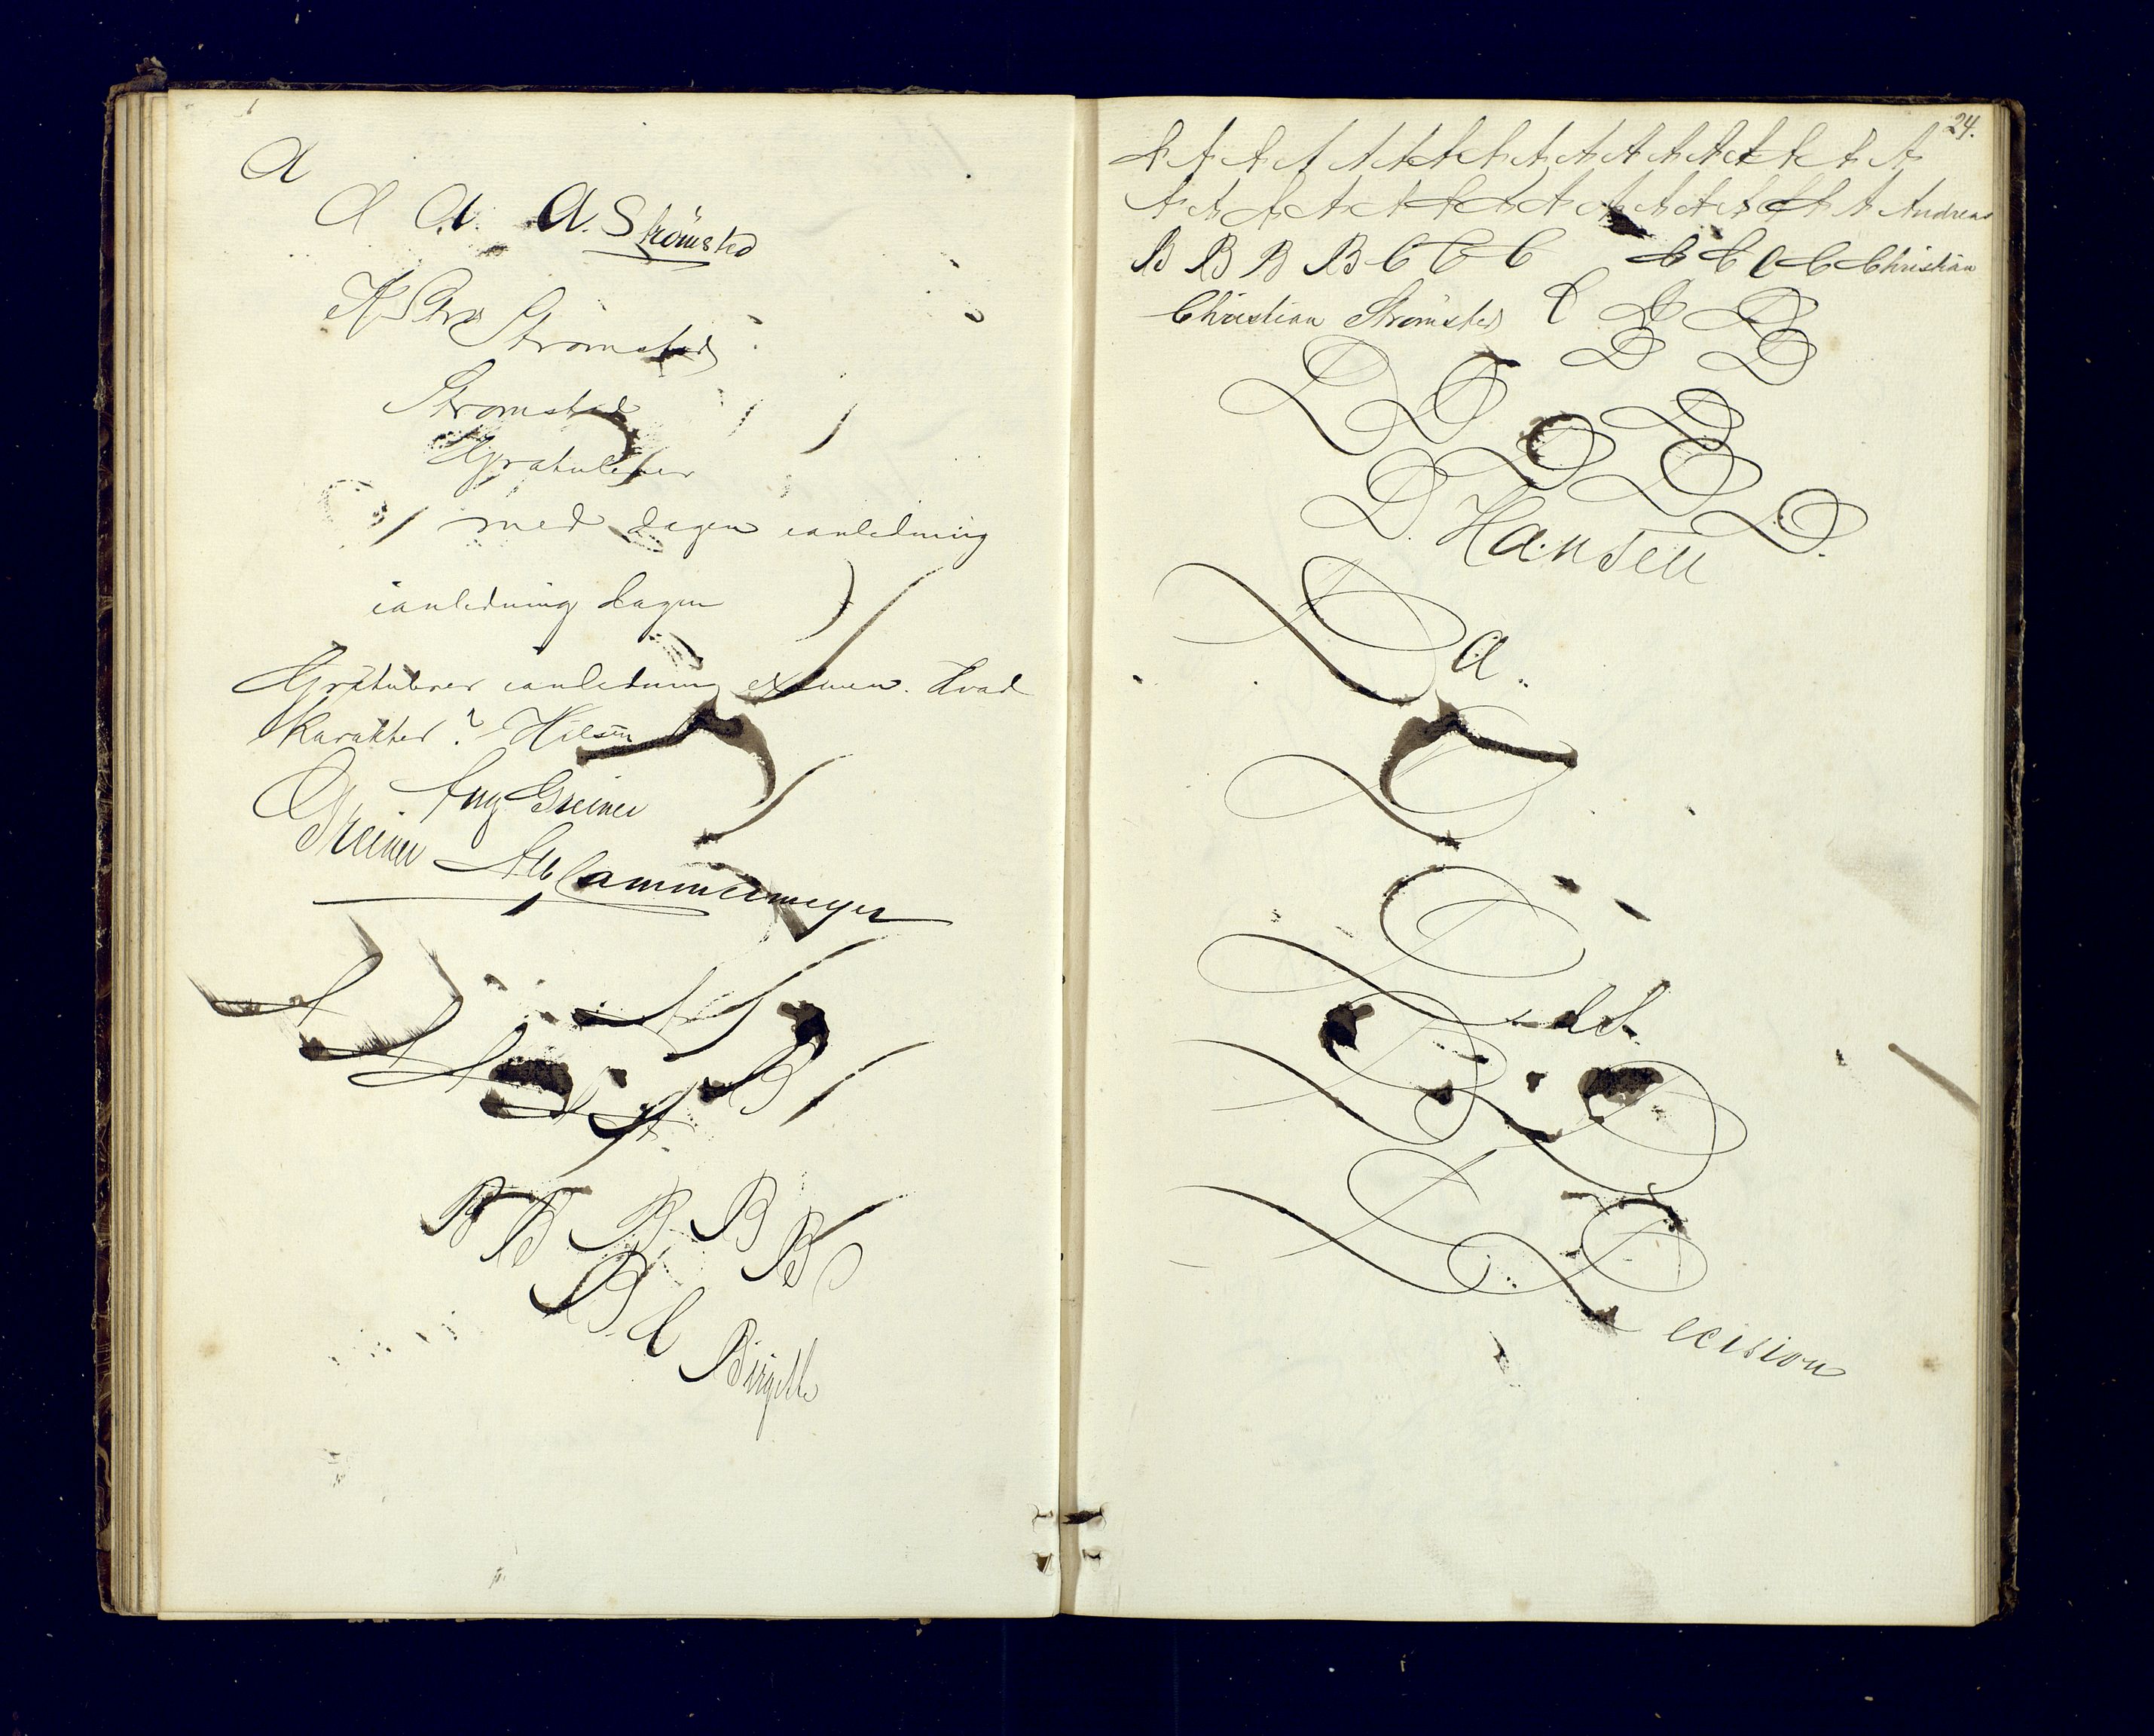 A
A A A. Strömsted
K Str Strömsted
Strömsted
Gratulerer
med dagen ianledning
ianledning dagen
Gratulerer ianledning examen. Hvad
Karakter? Hilsen
Aug Greiner
Greiner Alb Cammermeyer
B B B B B
B d
Birgitte
24.
A A A A A A A A A A A A A A A A A A
A A A A A A A A A A A A A A A Andreas
B B B B C C C C C C C Christian
Christian Strömsted C D D
D D
D D D
D D
D. Hansen D.
Da
D
D
det
D D
D D
ecision